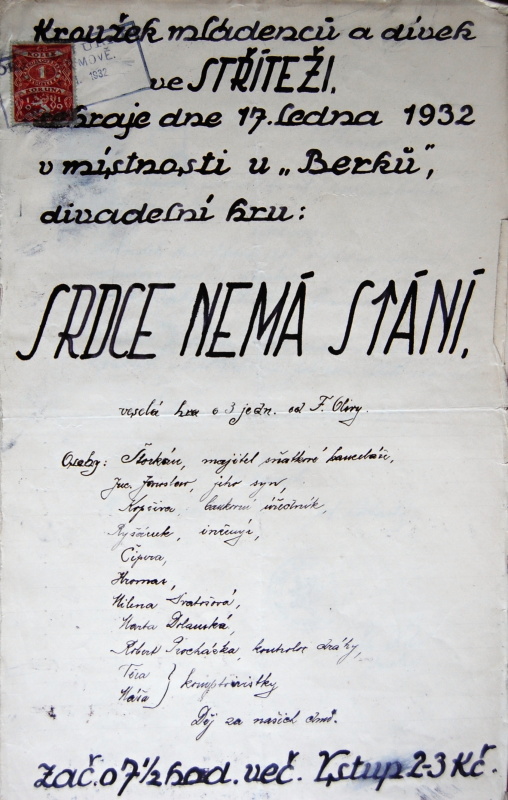 Kroužek mládenců a dívek
ve STŘÍTEŽI,
sehraje dne 17. ledna 1932
v místnosti u „Berků",
divadelní hru:
SRDCE NEMÁ STÁNÍ,
veselá hra o 3 jedn. od F. Olivy.
Osoby: majitel sňatkové kanceláře,
Juc. Jaroslav, jeho syn,
Kopřiva, bankovní úředník,
Ryšánek, inženýr,
Čipera,
Hromas,
Milena Svatošová,
Marta Dolanská,
Robert Procházka, kontrolor dráhy,
Věra
Máša } komptoiristky
Děj za našich dnů.
Zač. o 7½ hod. več. Vstup 2-3 Kč.
KOLEK
1
KORUNA
1932